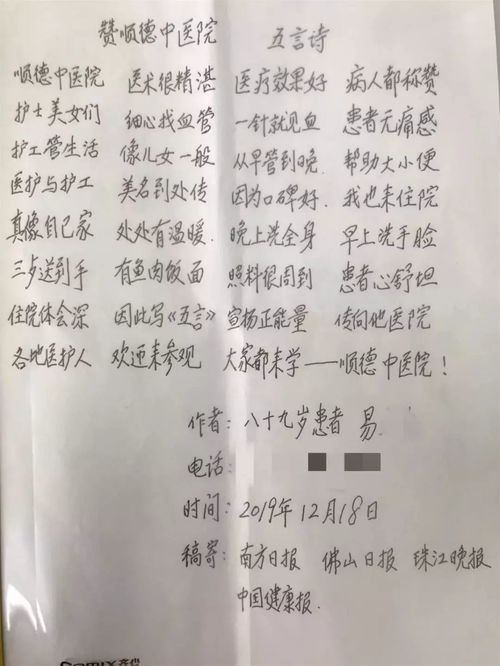 赞顺德中医院 五言诗
顺德中医院 医术很精湛 医疗效果好 病人都称赞
护士美女们 细心找血管 一针就见血 患者无痛感
护工管生活 像儿女一般 从早管到晚. 帮助大小便
医护与护工 美名到处传 因为口碑好. 我也来住院
真像自己家 处处有温暖. 晚上洗全身 早上洗手脸
三步送到手 有鱼肉饭面 照料很周到 患者心舒坦
住院体会深 因此写《五言》 宣扬正能量 传向他医院
各地医护人 欢迎来参观 大家都来学——顺德中医院！
作者：八十九岁患者 易
电话：
时间：2019年12月18日
稿寄：南方日报 佛山日报 珠江晚报
中国健康报.
Comix齐心